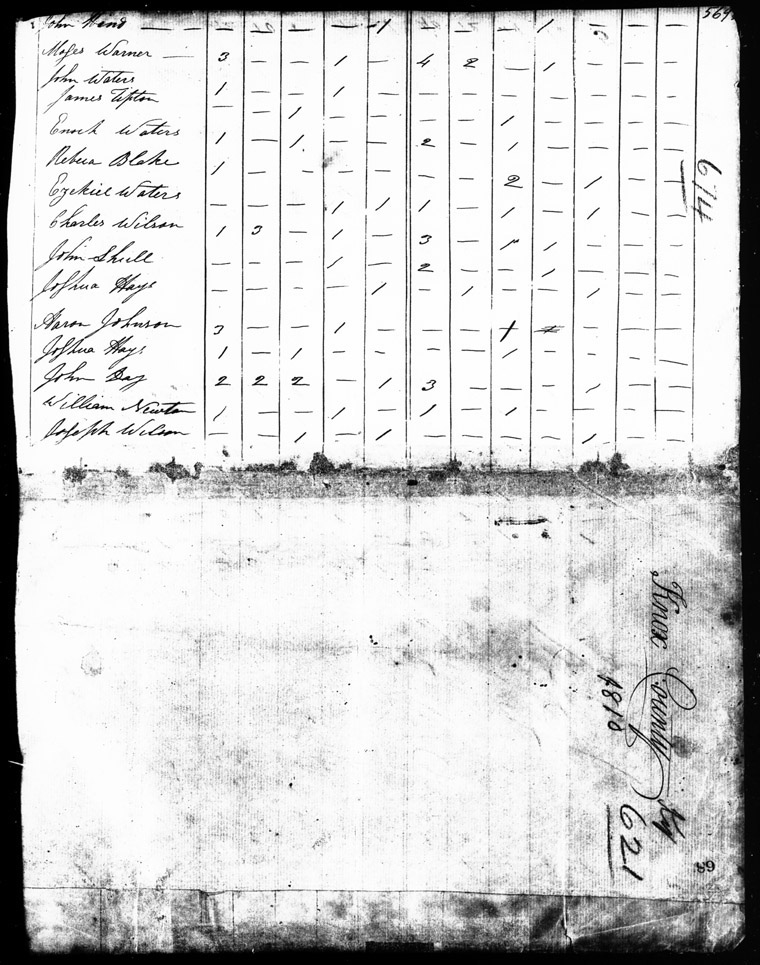 John Hind — — — — — 1 — — — 1 — — —
569
Moses Warner — 3 — — 1 — 4 2 — 1 — — —
John Waters 1 — — 1 —
James Tipton — — 1 — — — — 1 — — — —
Enoch Waters 1 — 1 — — 2 — 1 — — — —
Rebecca Blake 1 — — — — — — 2 — 1 — —
Ezekiel Waters — — — 1 1 1 — 1 — 1 — —
Charles Wilson 1 3 — 1 — 3 — 1 1 — — —
John Skull — — — 1 — 2 — — 1 — — —
Joshua Hays — — — — 1 — 1 — — 1 — —
Aaron Johnson 3 — — 1 — — — 1 — — —
Joshua Hays 1 — 1 — — — — 1 — — — —
John Day 2 2 2 — 1 3 — — — 1 — —
William Newton 1 — — 1 — 1 — 1 — — — —
Joseph Wilson — — 1 — 1 — — — — 1 — —
674
Knox County Ky
1810
621
89